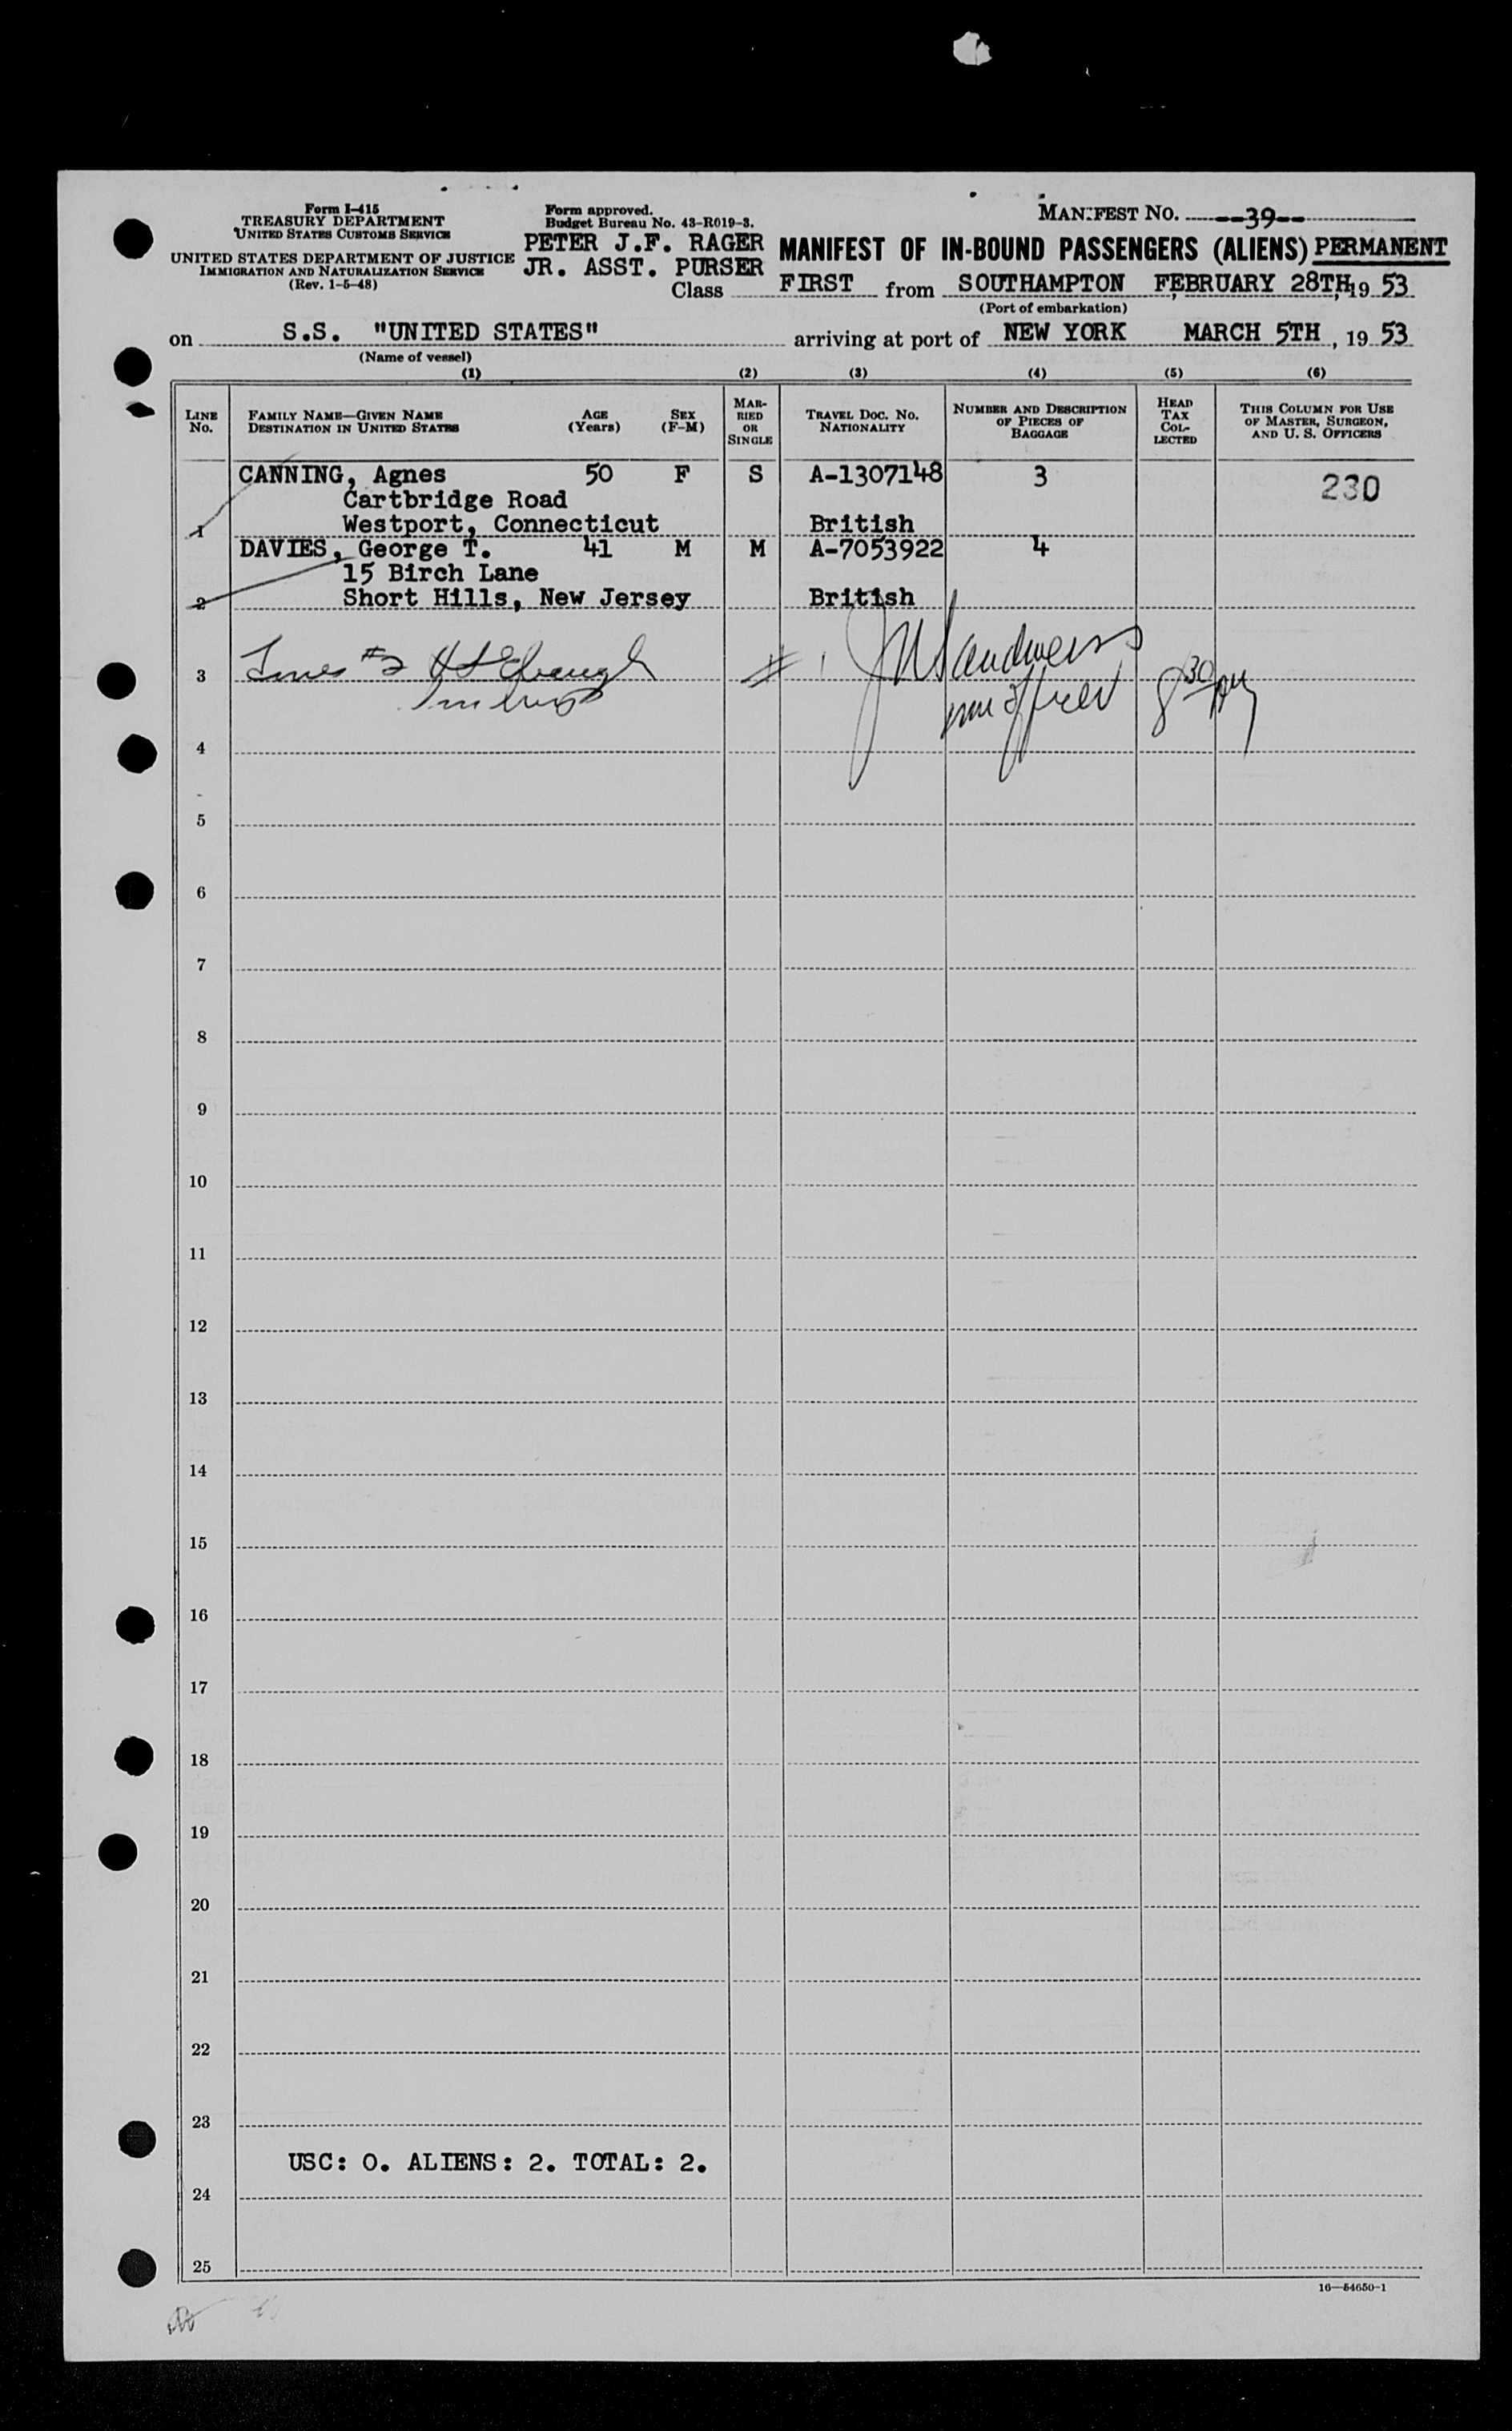 Form I-415
TREASURY DEPARTMENT
UNITED STATES CUSTOMS SERVICE
UNITED STATES DEPARTMENT OF JUSTICE
IMMIGRATION AND NATURALIZATION SERVICE
(Rev. 1-5-48)
Form approved.
Budget Bureau No. 43-R019-3.
PETER J.F. RAGER
JR. ASST. PURSER
MANIFEST NO. --39--
MANIFEST OF IN-BOUND PASSENGERS (ALIENS) PERMANENT
Class FIRST from SOUTHAMPTON FEBRUARY 28TH, 19 53
(Port of embarkation)
on S.S. "UNITED STATES" arriving at port of NEW YORK MARCH 5TH, 19 53
(Name of vessel)
(1) (2) (3) (4) (5) (6)
LINE NO.
FAMILY NAME—GIVEN NAME
DESTINATION IN UNITED STATES
AGE (Years)
SEX (F-M)
MARRIED OR SINGLE
TRAVEL DOC. NO.
NATIONALITY
NUMBER AND DESCRIPTION OF PIECES OF BAGGAGE
HEAD TAX COLLECTED
THIS COLUMN FOR USE OF MASTER, SURGEON, AND U. S. OFFICERS
CANNING, Agnes 50 F S A-1307148 3 230
Cartbridge Road
1 Westport, Connecticut British
DAVIES, George T. 41 M M A-7053922 4
15 Birch Lane
2 Short Hills, New Jersey British
3 #2 # 1
officer 8 30
4
5
6
7
8
9
10
11
12
13
14
15
16
17
18
19
20
21
22
23
USC: 0. ALIENS: 2. TOTAL: 2.
24
25
16—54650-1